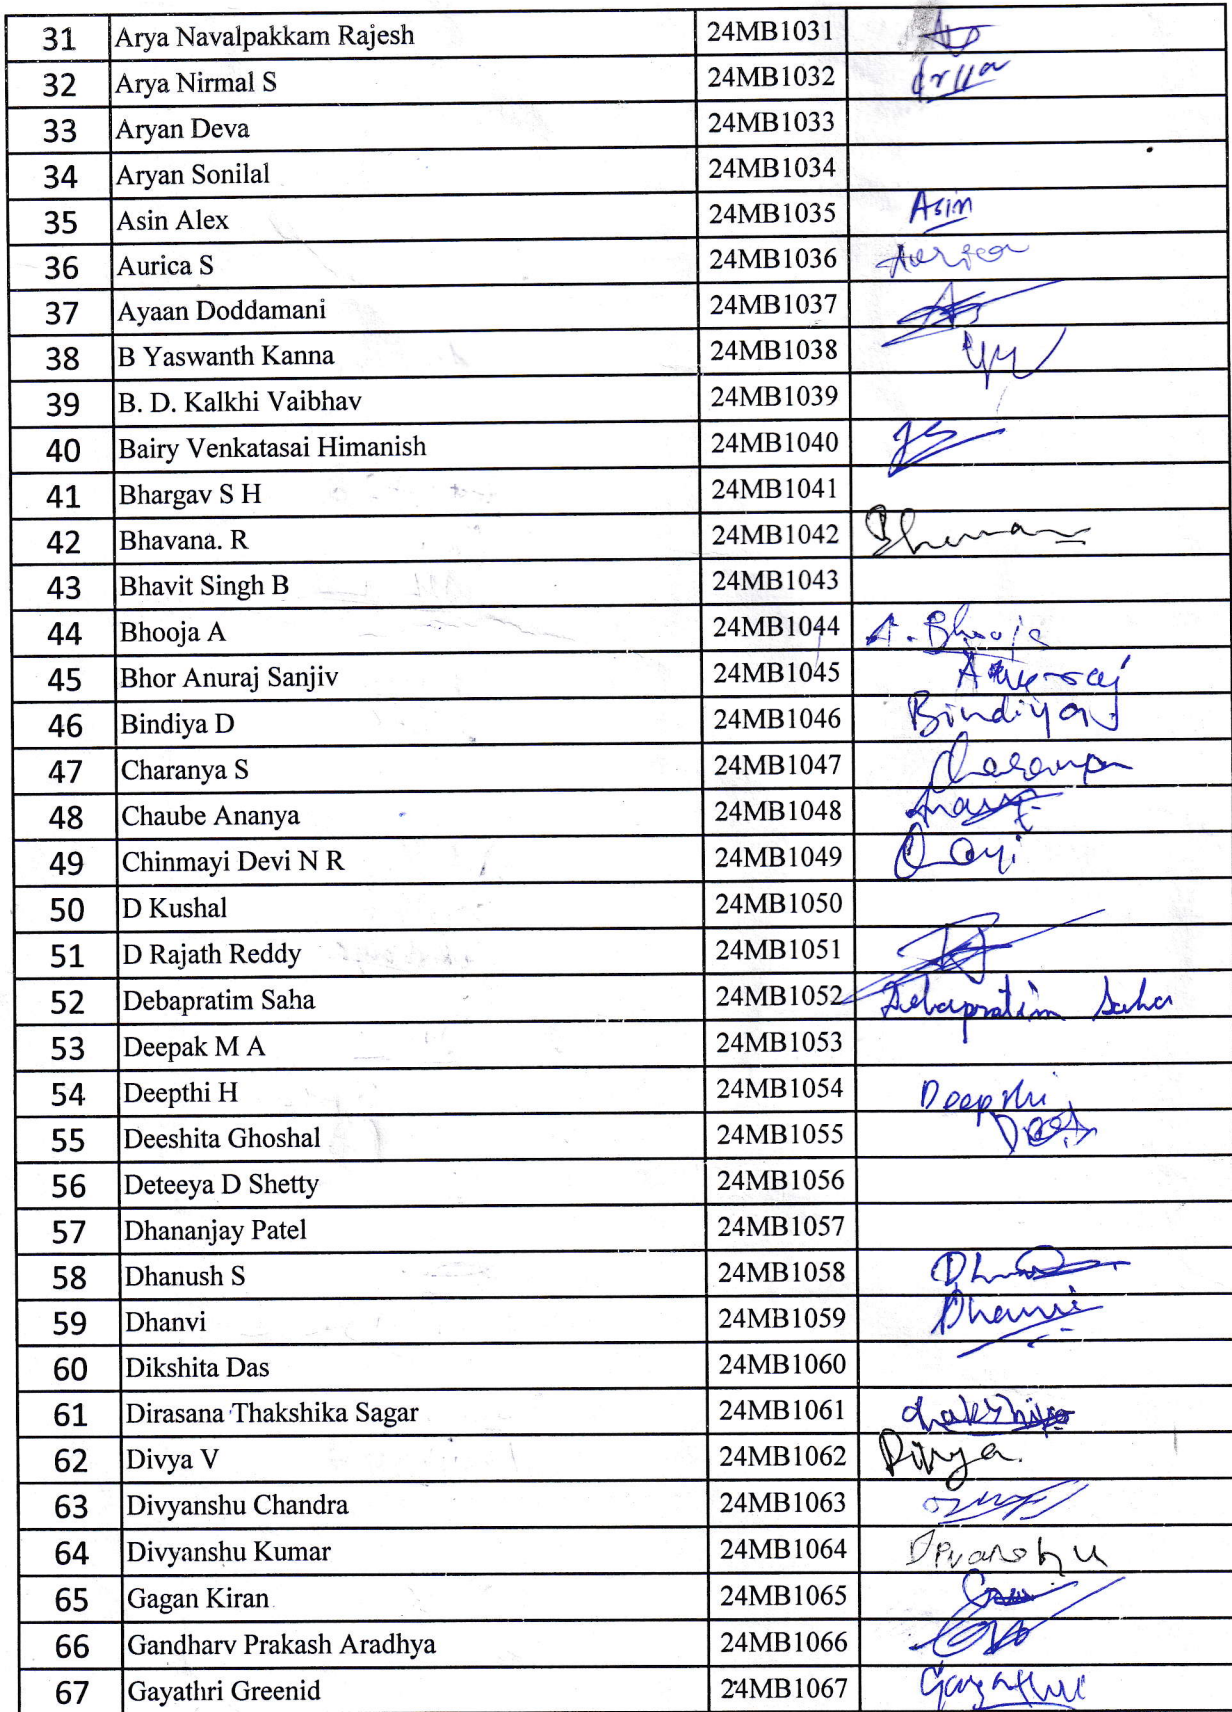 31 Arya Navalpakkam Rajesh 24MB1031
32 Arya Nirmal S 24MB1032
33 Aryan Deva 24MB1033
34 Aryan Sonilal 24MB1034
35 Asin Alex 24MB1035 Asin
36 Aurica S 24MB1036 Aurica
37 Ayaan Doddamani 24MB1037
38 B Yaswanth Kanna 24MB1038
39 B. D. Kalkhi Vaibhav 24MB1039
40 Bairy Venkatasai Himanish 24MB1040
41 Bhargav S H 24MB1041
42 Bhavana. R 24MB1042
43 Bhavit Singh B 24MB1043
44 Bhooja A 24MB1044 A. Bhooja
45 Bhor Anuraj Sanjiv 24MB1045 Anuraj
46 Bindiya D 24MB1046 Bindiya
47 Charanya S 24MB1047 Charanya
48 Chaube Ananya 24MB1048
49 Chinmayi Devi N R 24MB1049
50 D Kushal 24MB1050
51 D Rajath Reddy 24MB1051
52 Debapratim Saha 24MB1052 Debapratim Saha
53 Deepak M A 24MB1053
54 Deepthi H 24MB1054 Deepthi
55 Deeshita Ghoshal 24MB1055
56 Deteeya D Shetty 24MB1056
57 Dhananjay Patel 24MB1057
58 Dhanush S 24MB1058
59 Dhanvi 24MB1059 Dhanvi
60 Dikshita Das 24MB1060
61 Dirasana Thakshika Sagar 24MB1061
62 Divya V 24MB1062 Divya.
63 Divyanshu Chandra 24MB1063
64 Divyanshu Kumar 24MB1064
65 Gagan Kiran 24MB1065
66 Gandharv Prakash Aradhya 24MB1066
67 Gayathri Greenid 24MB1067 Gayathri